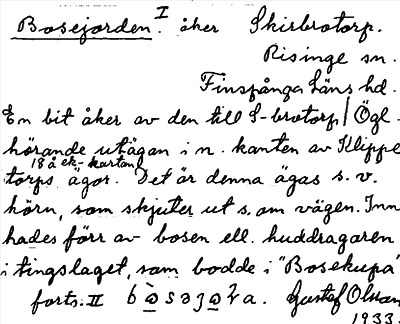 Bosejorden. I åker Skirbrotorp.
Risinge sn.
Finspånga Läns hd.
En bit åker av den till S-brotorp / Ögl.
hörande utägan i n. kanten av Klippe
18å ek-kartan
torps ägor. Det är denna ägas s.v.
hörn, som skjuter ut s. om vägen. Inne
hades förr av bosen ell. huddragaren
i tingslaget, som bodde i "Bosekupa"
forts. II Gustaf Olsson
1933.